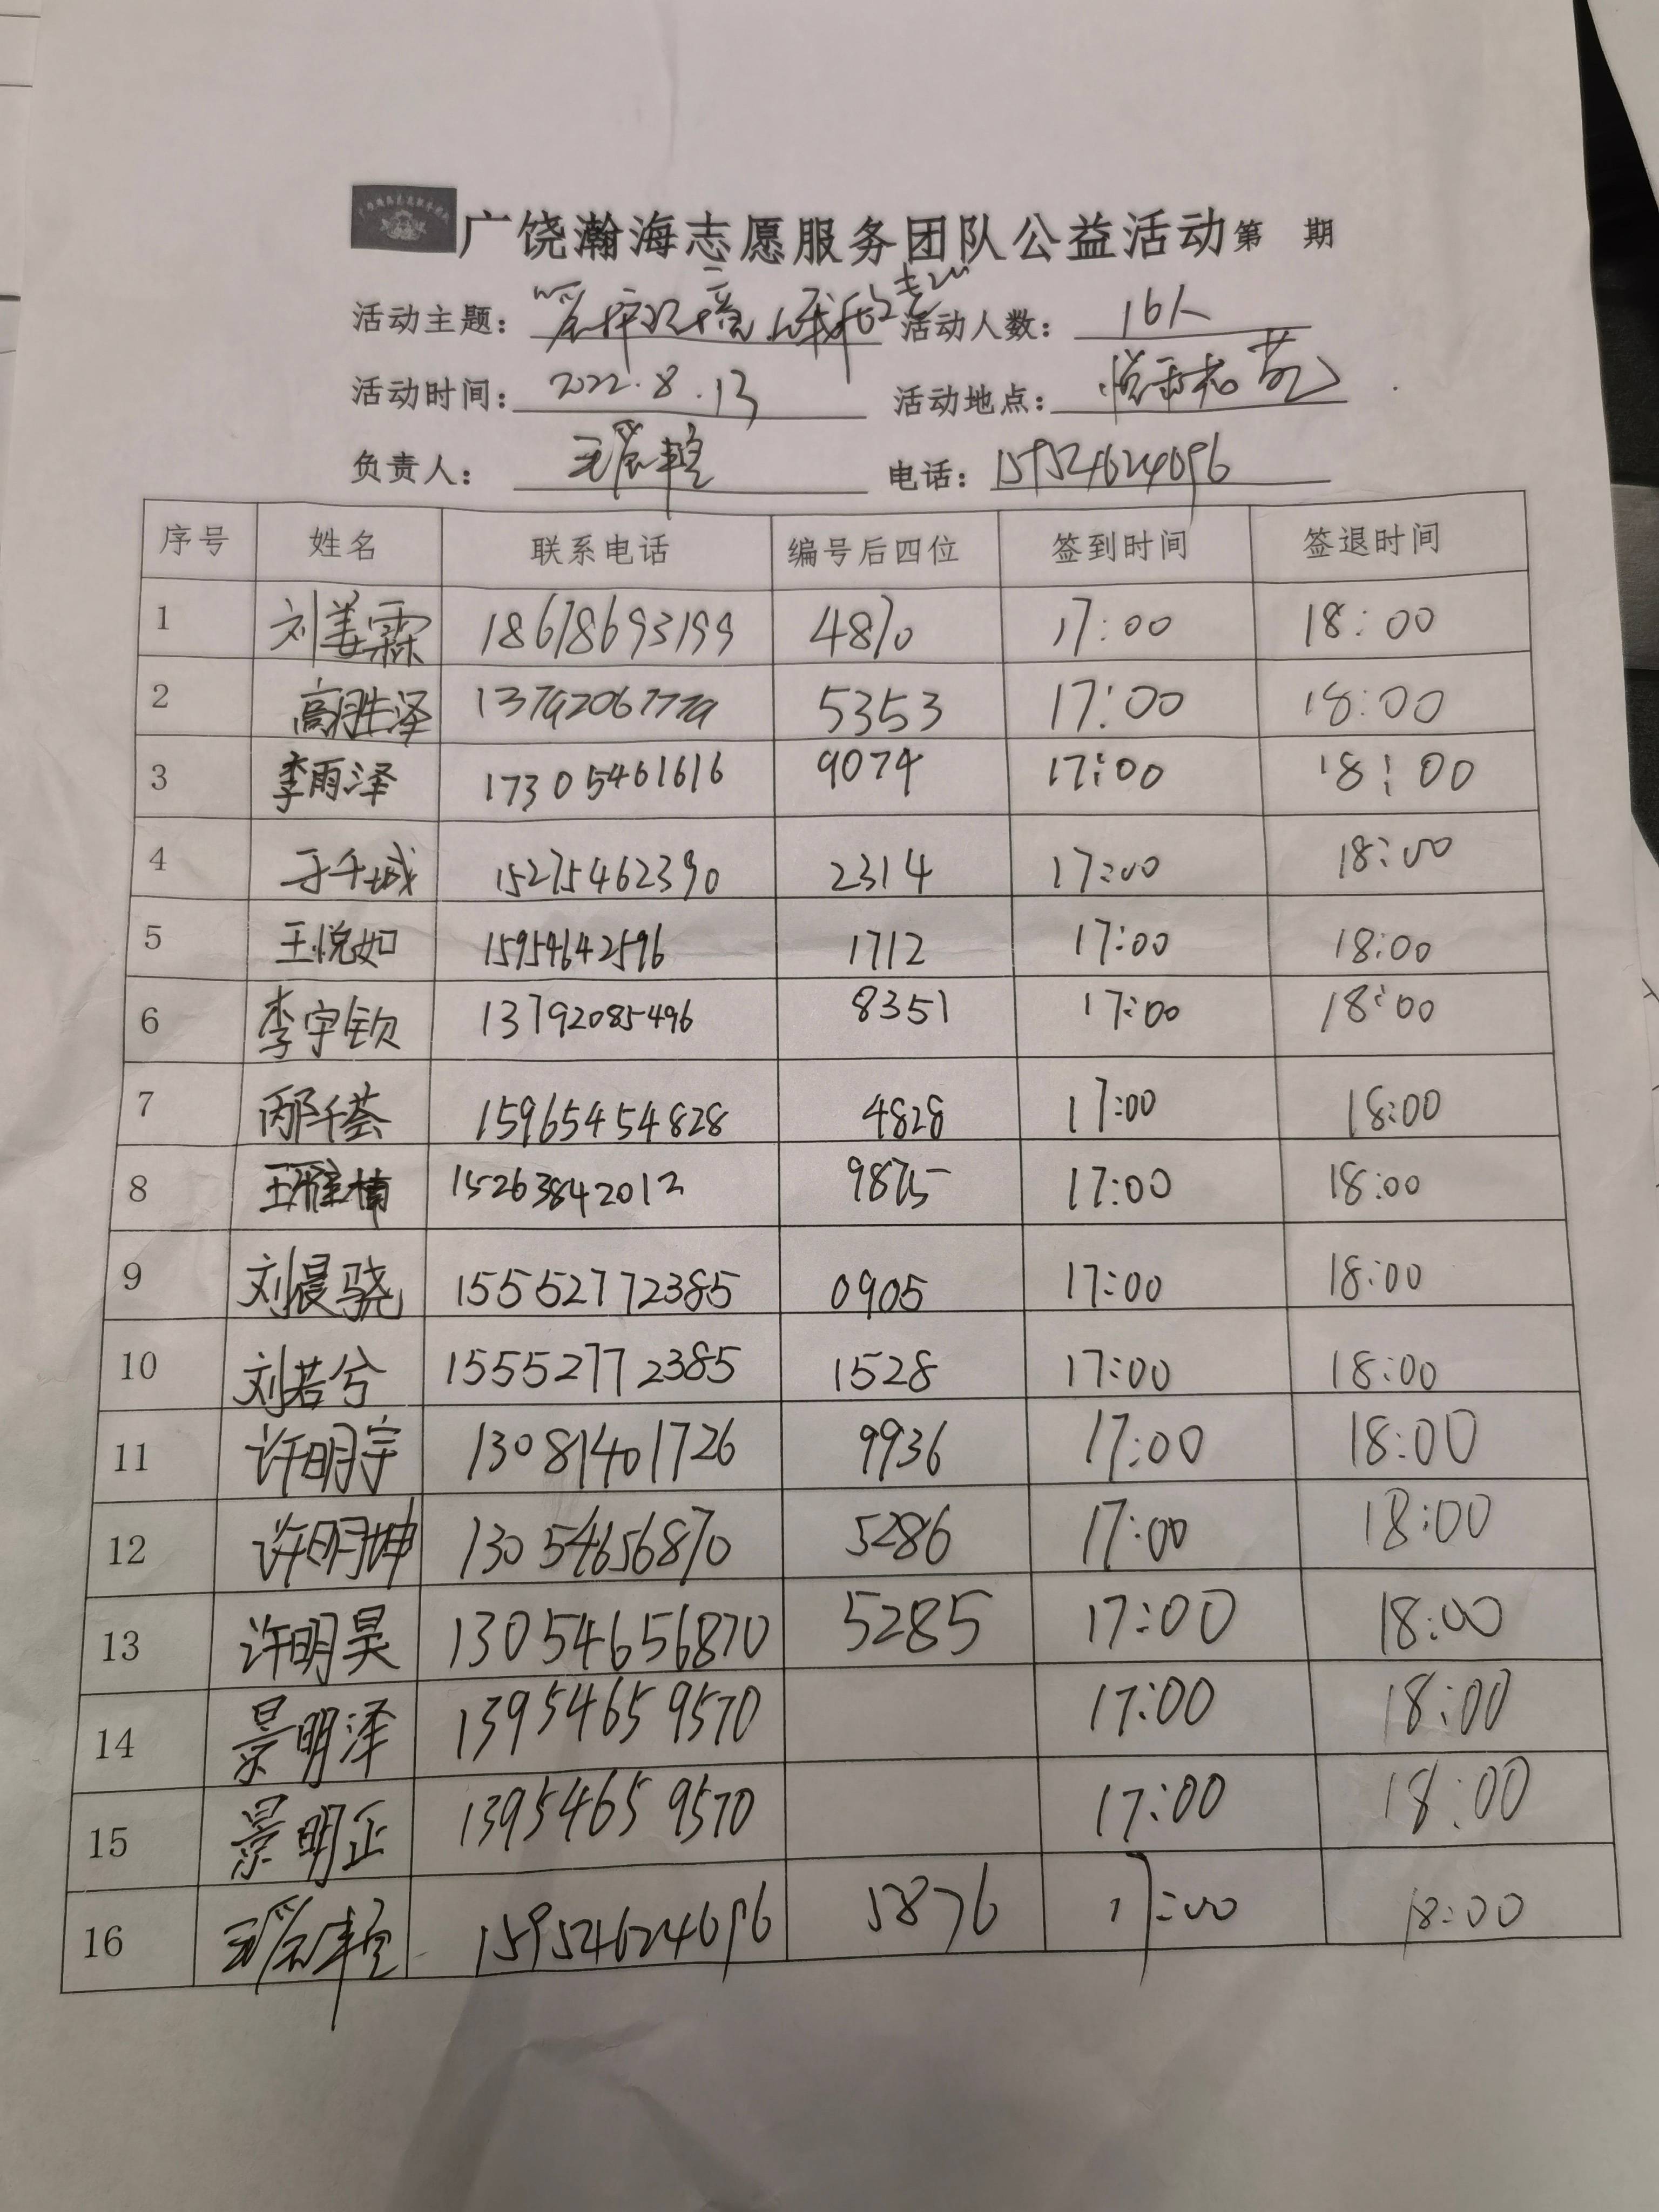 广饶瀚海志愿服务团队公益活动第 期
活动主题： 活动人数：16人
活动时间：2022.8.13 活动地点：
负责人： 电话：159524624696
序号 姓名 联系电话 编号后四位 签到时间 签退时间
1 刘姜霖 18678693199 4870 17:00 18:00
2 高胜泽 13792067779 5353 17:00 18:00
3 李雨泽 17305461616 9074 17:00 18:00
4 于千城 15275462390 2314 17:00 18:00
5 王悦如 15954642596 1712 17:00 18:00
6 李宇钦 13792085496 8351 17:00 18:00
7 邴千荟 15965454828 4828 17:00 18:00
8 王雅楠 15263842012 9875 17:00 18:00
9 刘晨骁 15552772385 0905 17:00 18:00
10 刘若兮 15552772385 1528 17:00 18:00
11 许明宇 13081401726 9936 17:00 18:00
12 许明坤 13054656870 5286 17:00 18:00
13 许明昊 13054656870 5285 17:00 18:00
14 景明泽 13954659570 17:00 18:00
15 景明正 13954659570 17:00 18:00
16 159524624696 5876 17:00 18:00